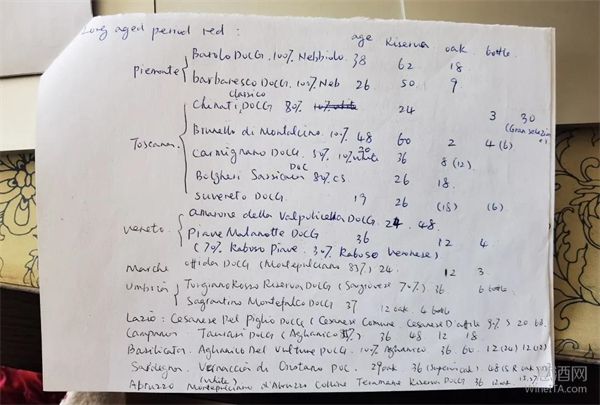 Long aged period red : age Riserva oak bottle
Piemonte Barolo DOCG . 100% Nebbiolo 38 62 18
barbaresco DOCG . 100% Neb 26 50 9
classico
Chianti DOCG 80% 24 3 30
(Gran selezione)
Toscana Brunello di Montalcino . 10% 48 60 2 4 (6)
Carmignano DOCG 50% 10% 20 white 36 8 (12)
DOC
Bolgheri Sassicaia 80% CS 26 18
Suvereto DOCG 19 26 (18) (6)
Veneto amarone della Valpolicella DOCG . 24 . 48
Piave Malanotte DOCG 36 12 4
(70% Raboso Piave . 30% Raboso Veronese)
Marche offida DOCG (Montepulciano 85%) 24 12 3
Umbria Torgiano Rosso Riserva DOCG (Sangiovese 70%) 36 6 bottle
Sagrantino Montefalco DOCG 37 12 oak 4 bottle
Lazio : Cesanese Del Piglio DOCG (Cesanese Comune Cesanese D'affile 9%) 20
Campania Taurasi DOCG (Aglianico 85%) 36 48 12 18
Basilicata . Aglianico Del Vulture DOCG . 100% Aglianico 36 60 12 (24) 12 (12)
Sardegna Vernaccia di Oristano DOC . 29 oak 36 (Superiore) 48 (S R oak)
(white)
Abruzzo Montepulciano d'Abruzzo Colline Teramane Riserva DOCG 36 12 oak
酒网
WineITA.COM